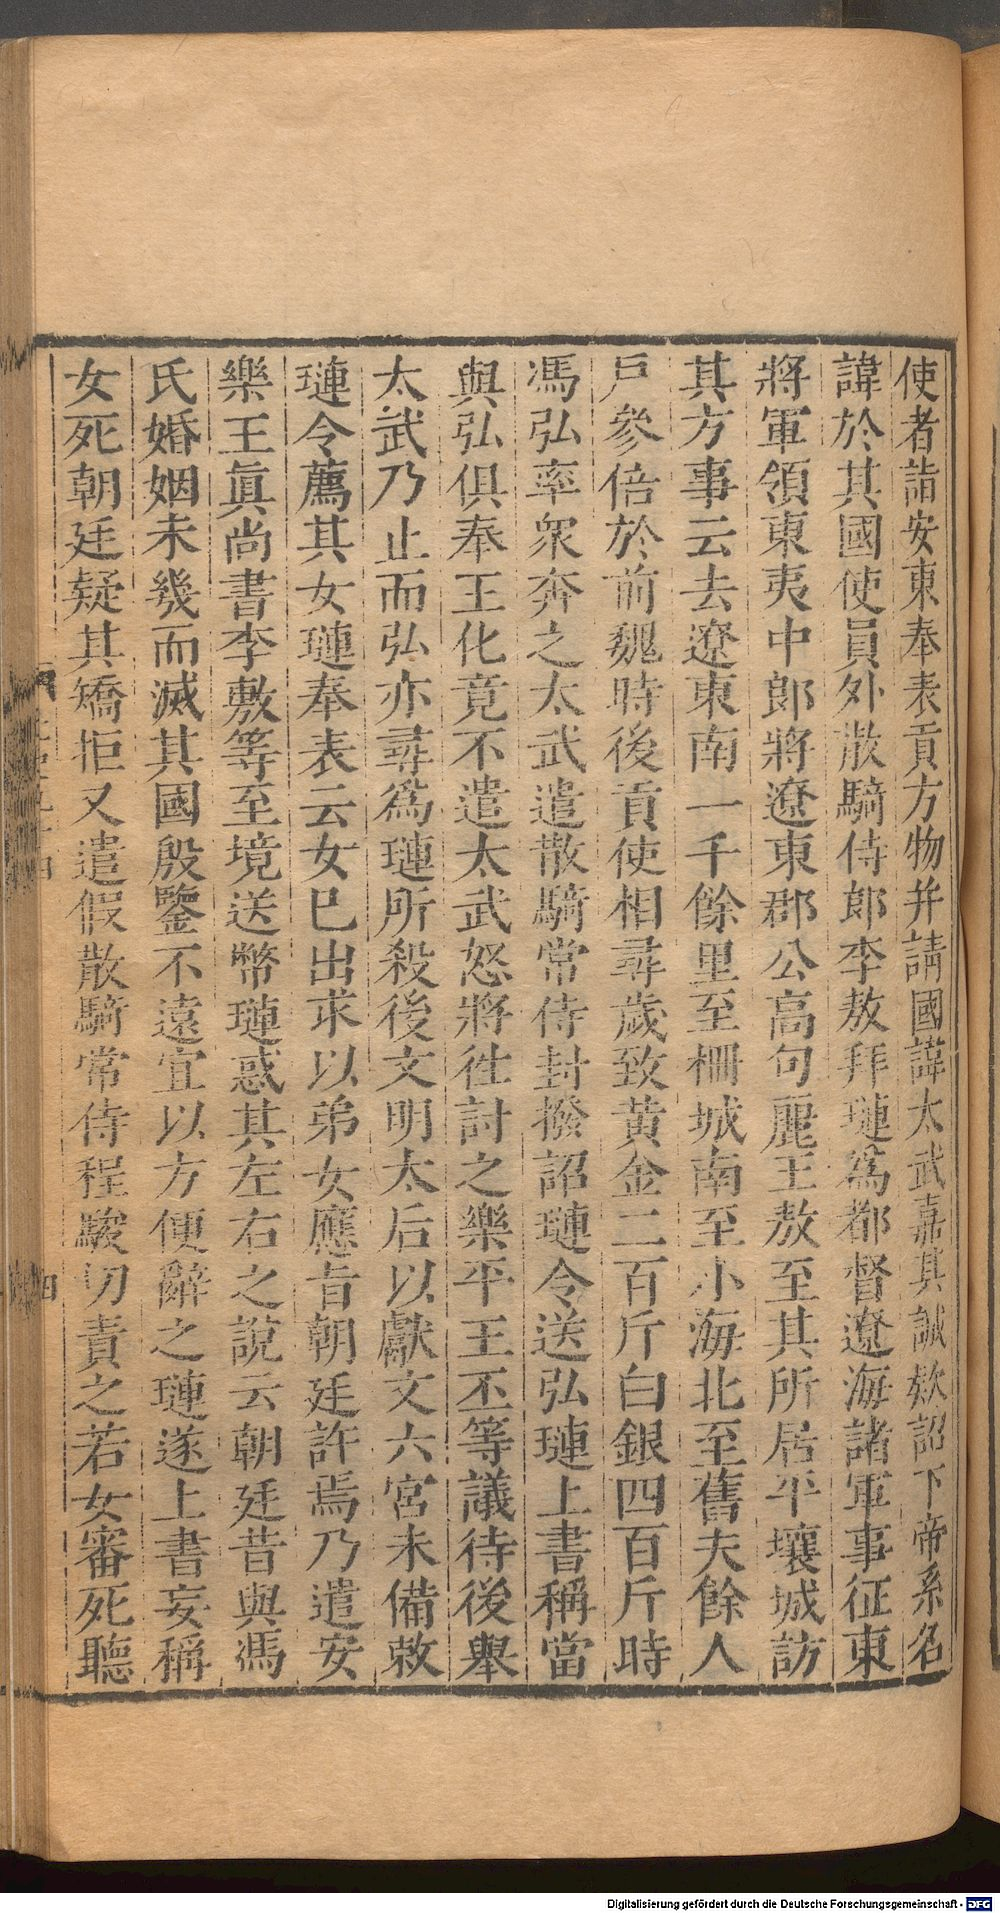 使者詣安東奉表貢方物并請國諱太武嘉其誠欵詔下帝系名
諱於其國使員外散騎侍郎李敖拜璉為都督遼海諸軍事征東
將軍領東夷中郎將遼東郡公高句麗王敖至其所居平壤城訪
其方事云去遼東南一千餘里至柵城南至小海北至舊夫餘人
戶參倍於前魏時後貢使相尋歲致黃金二百斤白銀四百斤時
馮弘率衆奔之太武遣散騎常侍封撥詔璉令送弘璉上書稱當
與弘俱奉王化竟不遣太武怒將徃討之樂平王丕等議待後舉
太武乃止而弘亦尋為璉所殺後文明太后以獻文六宮未備敕
璉令薦其女璉奉表云女已出求以弟女應旨朝廷許焉乃遣安
樂王眞尚書李敷等至境送幣璉惑其左右之說云朝廷昔與馮
氏婚姻未幾而滅其國殷鑒不遠宜以方便辭之璉遂上書妄稱
女死朝廷疑其矯拒又遣假散騎常侍程駿切責之若女審死聽
四
Digitalisierung gefördert durch die Deutsche Forschungsgemeinschaft - DFG